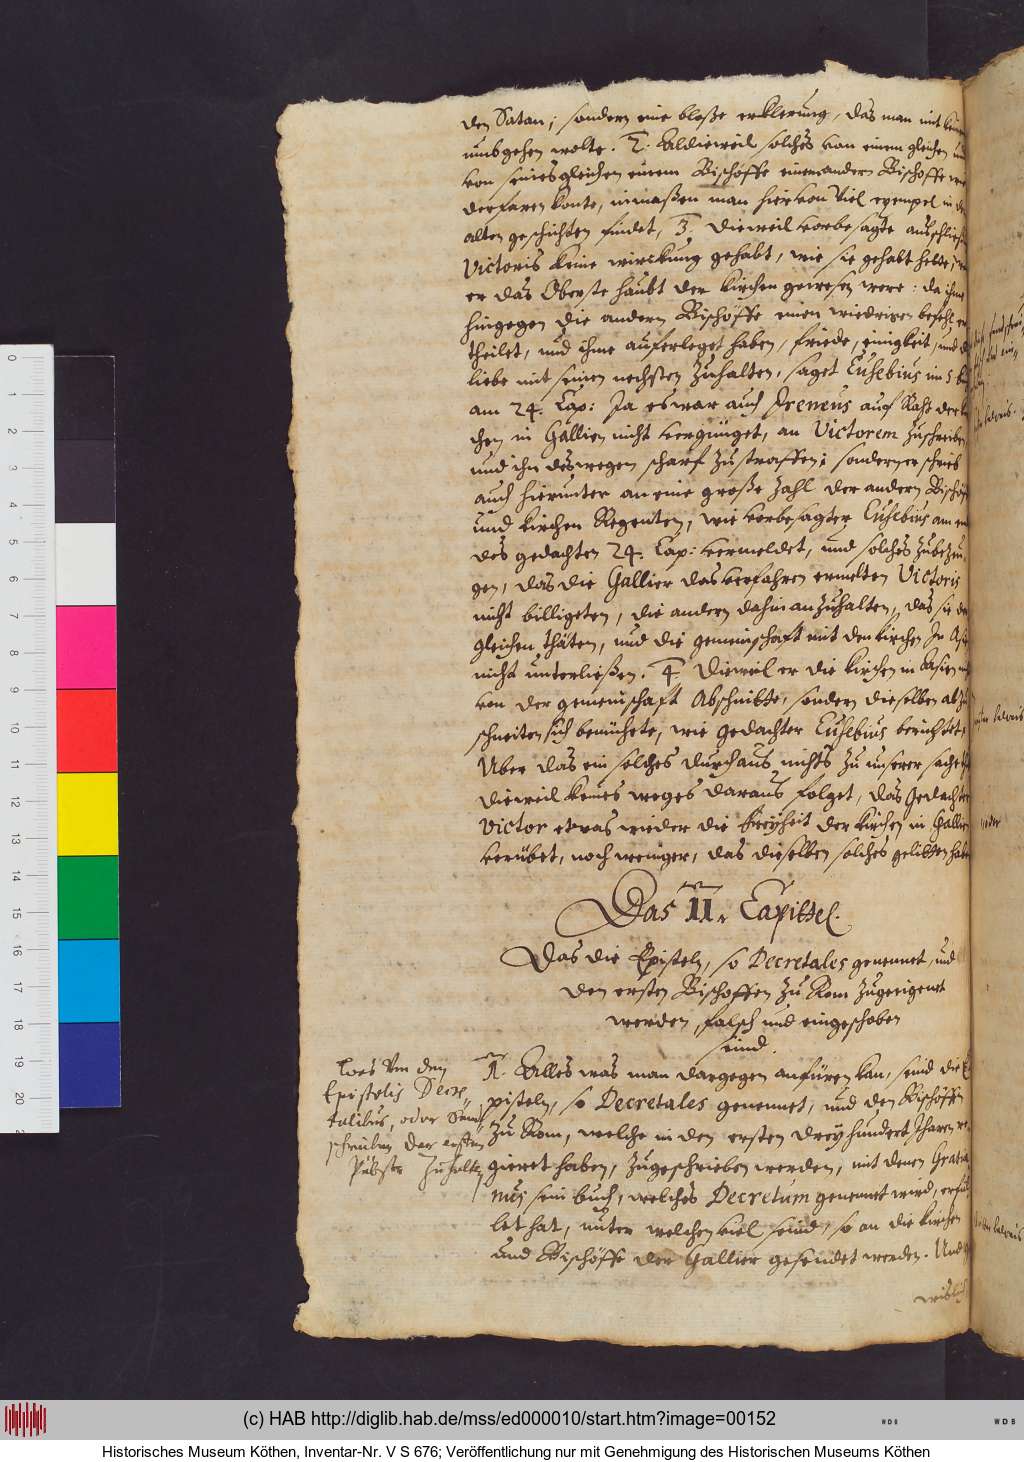 den Satan; sondern eine bloße erklerung, das man mit
umbgehen wolte. 2. Aldieweil solches von einem gleichen und
von seines gleichen einem Bischoffe einem andern Bischoffe
derfaren konte, inmaßen man hiervon viel exempel in den
alten geschichten findet, 3. Dieweil vorbesagte
Victoris keine wirckung gehabt, wie sie gehabt hette,
er das Oberste haubt der kirchen gewesen were: da ihme
hingegen die andern Bischöffe einen wiedrigen befehl er
theilet, und ihme auferleget haben, friede, einigkeit, und
liebe mit seinen nechsten zuhalten, saget Eusebius im 5
am 24. Cap: Ja es war auch Ireneus auf Raht der
chen in Gallien nicht vergnüget, an Victorem zuschreiben
und ihn deswegen scharf zu straffen; sondern er schrieb
auch hierunter an eine große zahl der andern Bischöffe
und kirchen Regenten, wie vorbesagter Eusebius am
des gedachten 24. Cap: vermeldet, und solches zubezeu
gen, das die Gallier das verfahren ermelten Victoris
nicht billigeten, die andern dahin anzuhalten, das sie
gleichen thäten, und die gemeinschaft mit den kirchen In Asien
nicht unterließen. 4. Dieweil er die kirchen in Asien
von der gemeinschaft Abschnitte, sondern dieselben ab zu
schneiten sich bemühete, wie gedachter Eusebius berichtet,
Uber das ein solches durchaus nichts zu unserer sache
dieweil keines weges daraus folget, das Gedachter
Victor etwas wieder die freyheit der kirchen in Gallien
verübet, noch weniger, das dieselben solches gelitten habe
Das II. Capittel.
Das die Episteln, so Decretales genennet, und
den ersten Bischoffen zu Rom zugeeigenet
werden, falsch und eingeschoben
seind.
Was von den
Epistolis Decre
talibus, oder Send
schreiben der ersten
Päbste zuhalten
1. Alles was man dargegen anfüren kan, seind die E
pisteln, so Decretales genennet, und den Bischöffen
zu Rom, welche in den ersten dreyhundert Jharen re
gieret haben, zugeschrieben werden, mit denen Gratia
nus sein buch, welches Decretum genennet wird, erfül
let hat, unter welchen viel seind, so an die kirchen
und Bischöffe der Gallier gesendet werden. Und
(c) HAB http://diglib.hab.de/mss/ed000010/start.htm?image=00152
Historisches Museum Köthen, Inventar-Nr. V S 676; Veröffentlichung nur mit Genehmigung des Historischen Museums Köthen